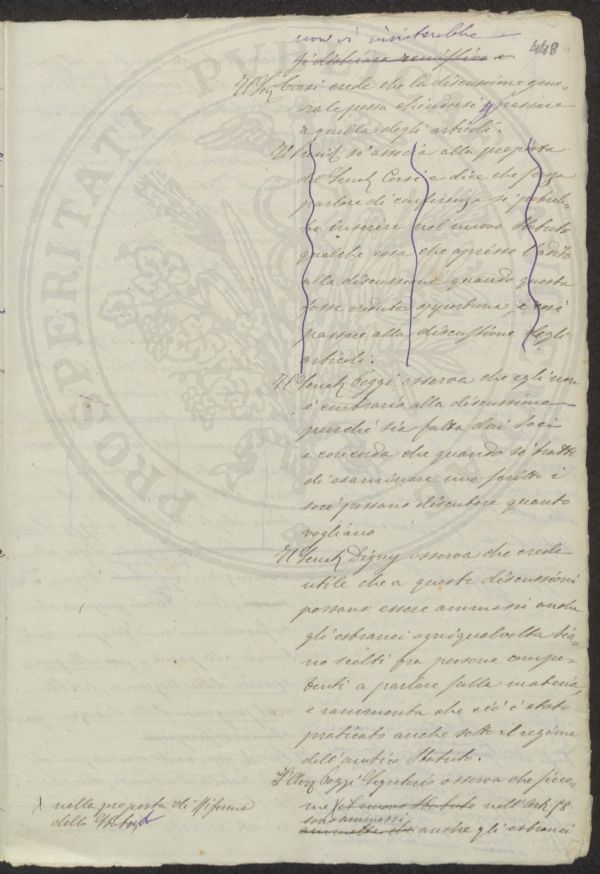 448
non vi insisterebbe
si dichiara remissivo e
Il Sen. Corsi crede che la discussione gene-
rale possa chiudersi e passare
a quella degli articoli.
Il Presid. si associa alla proposta
del Senat. Corsi e dice che senza
parlare di conferenza si potreb-
be inserire nel nuovo Statuto
qualche cosa che aprisse l'adito
alla discussione quando questa
fosse creduta opportuna, e così
passare alla discussione degli
articoli.
Il Senat. Pozzi osserva che egli non
è contrario alla discussione
purché sia fatta dai Soci
e concorda che quando si tratta
di esaminare uno scritto i
soci possano discutere quanto
vogliano
Il Senat. Digny osserva che crede
utile che a queste discussioni
possano essere ammessi anche
gli estranei ogniqualvolta sia-
no scelti fra persone compe-
tenti a parlare sulla materia,
e rammenta che ciò è stato
praticato anche sotto il regime
dell'antico Statuto.
L'Avv. Pozzi Segretario osserva che sicco-
me X il nuovo Statuto nell'Art. 58
sono ammessi
ammette che anche gli estranei
X nella proposta di Riforma
dello Statuto
PROSPERITATI PUBLICAE